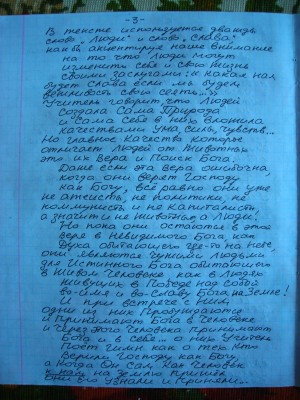 -3-
В тексте используется дважды
слово "Люди" и слово "Слава"
как бы акцентируя наше внимание
на то что люди могут
изменить себя и свою жизнь
своими заслугами: и какая нам
будет слава если мы будем
Учитель говорит, что Людей
создала Сама Природа
и Сама Себе в них вложила
качествами ума, силы, чувств...
Но главное качество которое
отличает Людей от Животных
это их Вера и Поиск Бога.
Даже если эта Вера ошибочна,
когда они верят Господу
как Богу, всё равно они уже
не атеисты, не политики, не
коммунисты и не капиталисты,
а значит и не Животные, а Люди!
Но пока они остаются в этой
вере в Невидимого Бога как
Духа обитающего где-то на Небе,
они являются чужими Людьми
для Истинного Бога обитающего
в Живом Человеке как в Людях
Живущих в Победе над собой
во-Имя и во-Славу Бога на Земле!
И при встрече с Ним,
одни из них Пробуждаются
и Принимают Бога в Человеке
и через этого Человека принимают
Бога и в себе... о них Учитель
Поёт Гимн как о тех кто
Верили Господу как Богу,
а когда Он Сам как Человек
к нам на Землю Пришёл
они Его Узнали и Приняли...